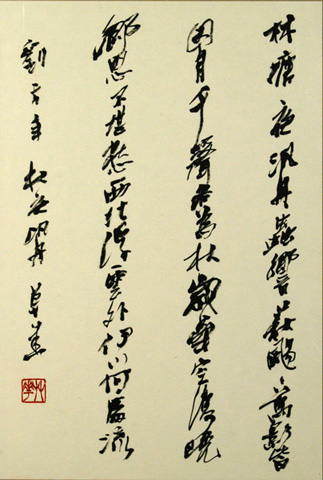 林塘夜汎舟蟲響荻颼々萬影皆
因月千聲各為秋歲華空復晚
鄉思不堪愁西北浮雲外伊川何處流
劉方平 秋夜汎舟